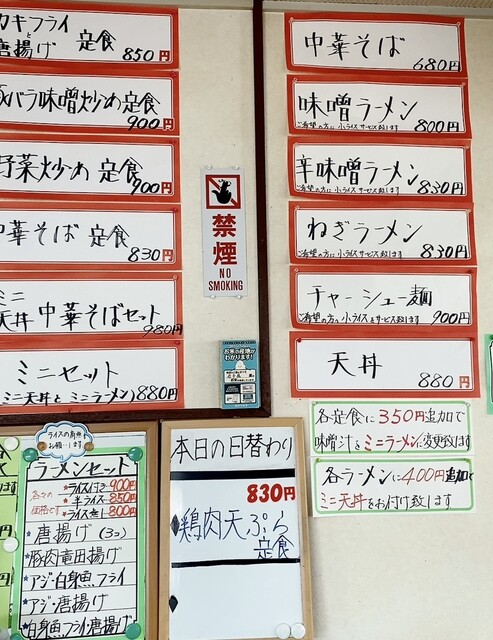 カキフライ
と
唐揚げ 定食
850円
豚バラ味噌炒め定食
900円
野菜炒め 定食
900円
中華そば 定食
830円
ミニ
天丼 中華そばセット
980円
ミニセット
ミニ天丼とミニラーメン 880円
禁煙
NO
SMOKING
お米の産地が
わかります!
中華そば
680円
味噌ラーメン
ご希望の方に小ライスサービス致します 800円
辛味噌ラーメン
ご希望の方に小ライスサービス致します 830円
ねぎラーメン
ご希望の方に小ライスサービス致します 830円
チャーシュー麺
ご希望の方に小ライスをサービス致します 900円
天丼
880円
各定食に350円追加で
味噌汁をミニラーメンに変更致します
各ラーメンに400円追加で
ミニ天丼をお付け致します
ライスの有無
お願いします
ラーメンセット
各々の
価格です
★ライス付き 900円
★半ライス 850円
★ライス無し 800円
★唐揚げ(3コ)
★豚肉竜田揚げ
★アジ・白身魚フライ
★アジ・唐揚げ
★白身魚フライ・唐揚げ
本日の日替わり
830円
鶏肉天ぷら
定食